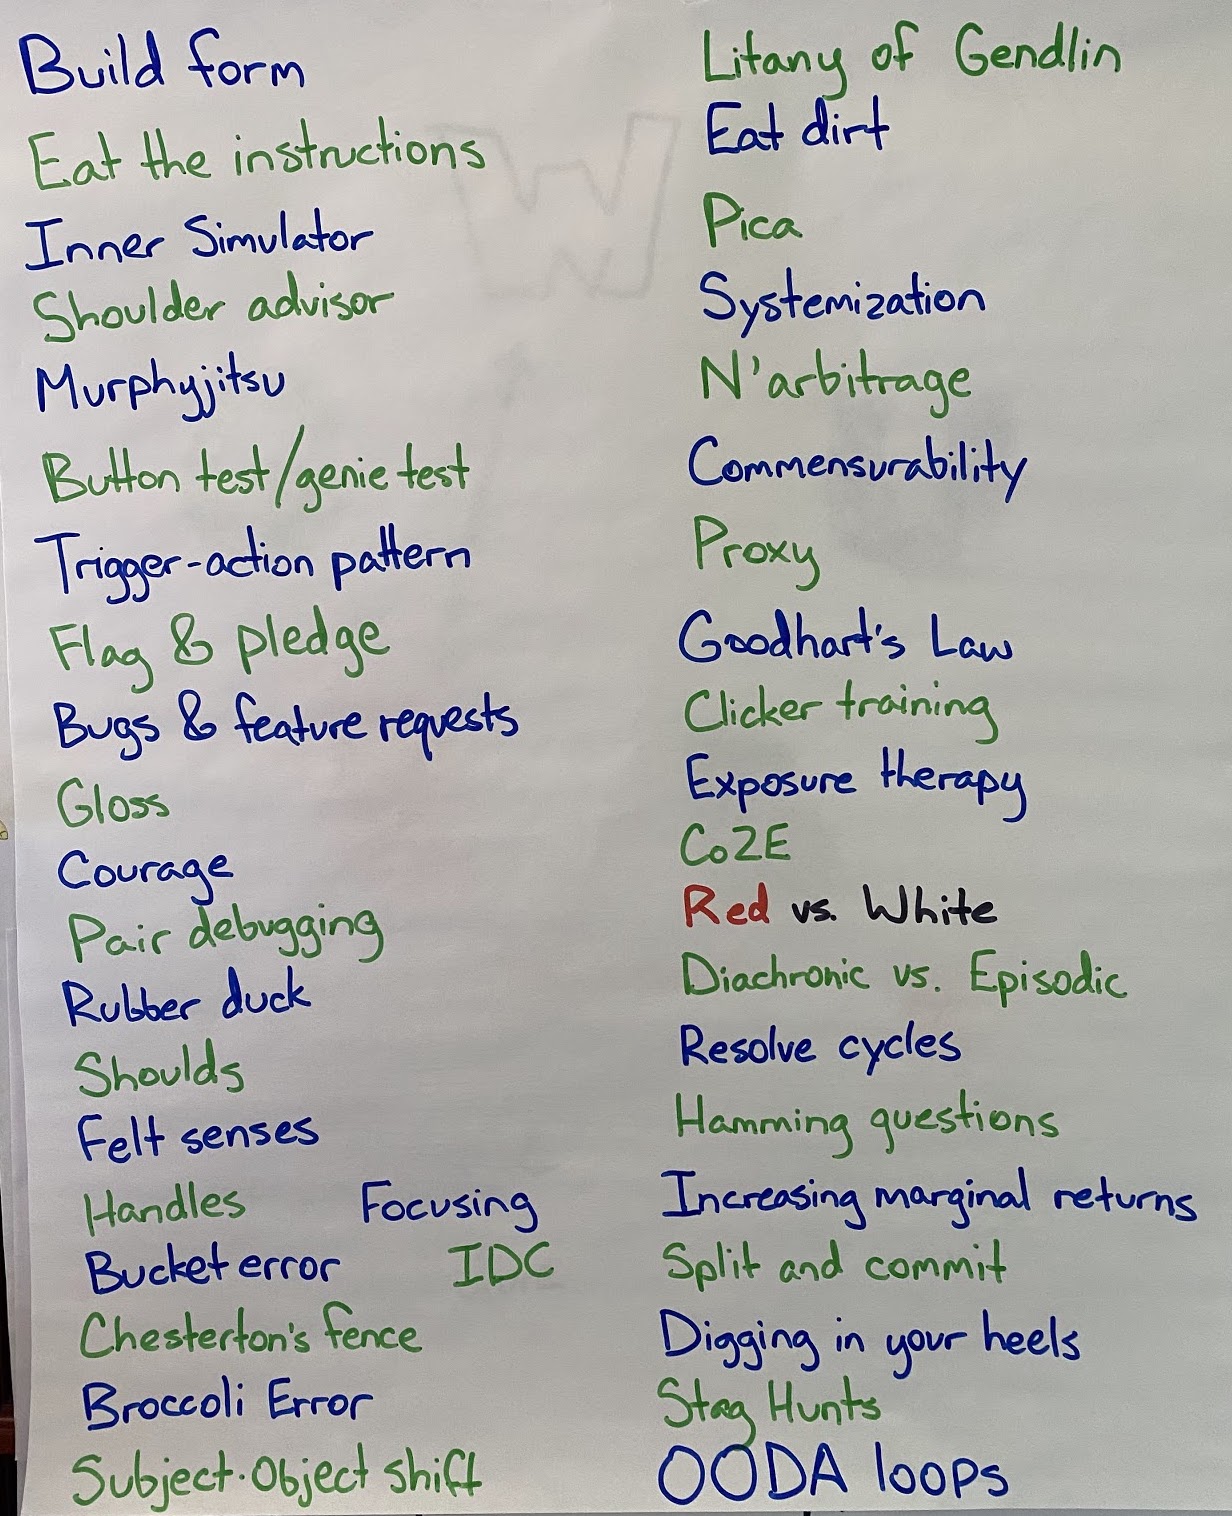 Build form
Eat the instructions
Inner Simulator
Shoulder advisor
Murphyjitsu
Button test/genie test
Trigger-action pattern
Flag & pledge
Bugs & feature requests
Gloss
Courage
Pair debugging
Rubber duck
Shoulds
Felt senses
Handles
Focusing
Bucket error
IDC
Chesterton's fence
Broccoli Error
Subject-Object shift
Litany of Gendlin
Eat dirt
Pica
Systemization
N'arbitrage
Commensurability
Proxy
Goodhart's Law
Clicker training
Exposure therapy
CoZE
Red vs. White
Diachronic vs. Episodic
Resolve cycles
Hamming questions
Increasing marginal returns
Split and commit
Digging in your heels
Stag Hunts
OODA loops